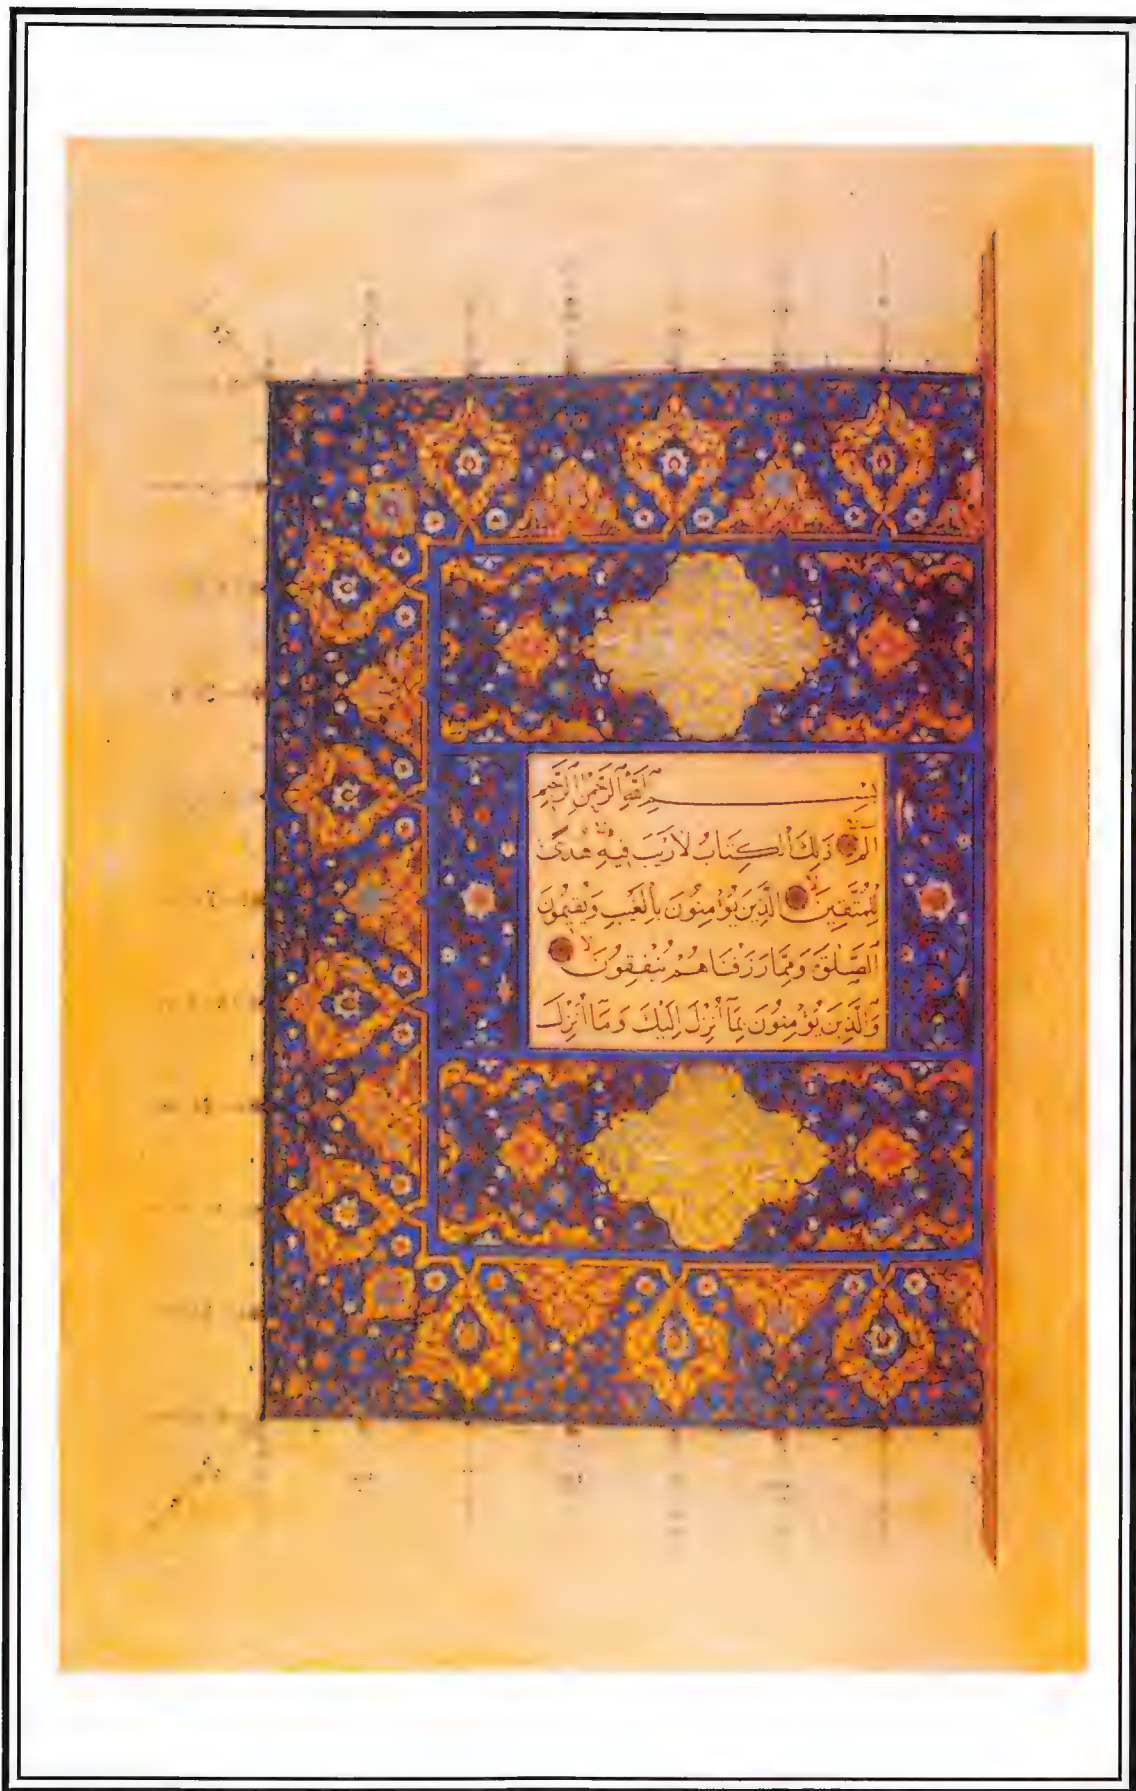 بِسْمِ ٱللَّهِ ٱلرَّحْمَٰنِ ٱلرَّحِيمِ
الٓمٓ ذَٰلِكَ ٱلْكِتَابُ لَا رَيْبَ فِيهِ هُدًى
لِلْمُتَّقِينَ ٱلَّذِينَ يُؤْمِنُونَ بِٱلْغَيْبِ وَيُقِيمُونَ
ٱلصَّلَوٰةَ وَمِمَّا رَزَقْنَاهُمْ يُنْفِقُونَ
وَٱلَّذِينَ يُؤْمِنُونَ بِمَآ أُنْزِلَ إِلَيْكَ وَمَآ أُنْزِلَ